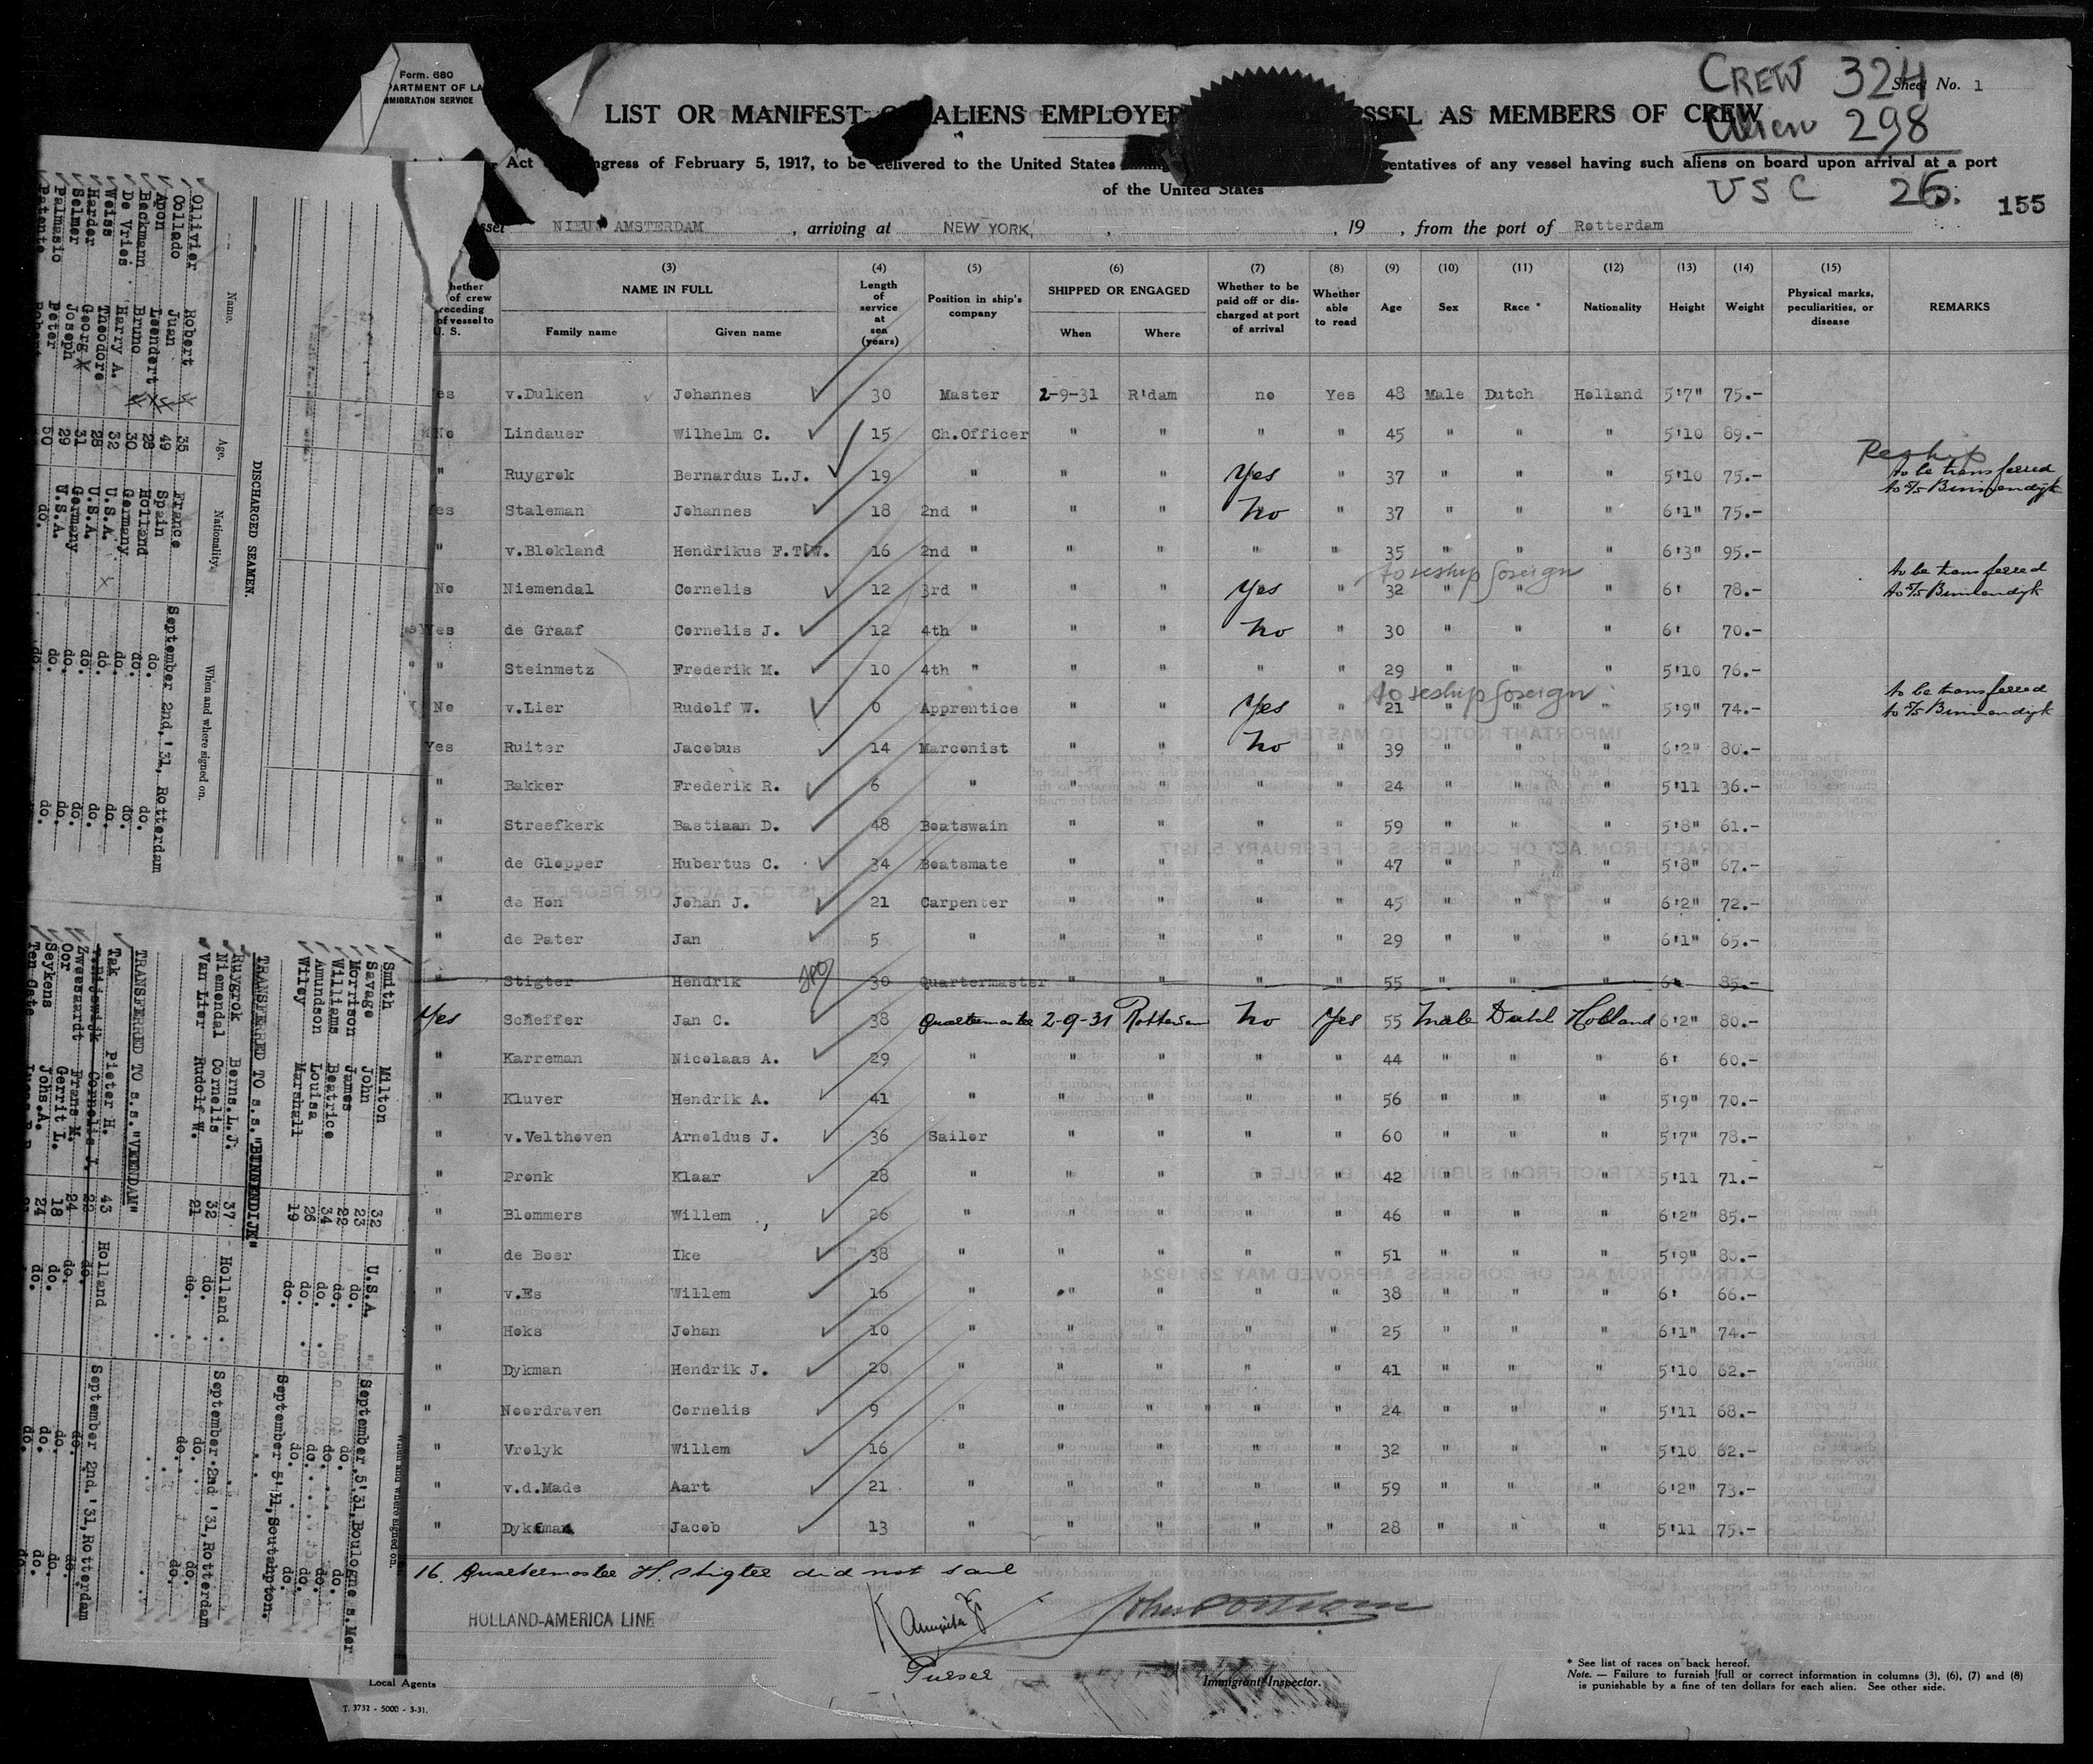 Form. 680
IMMIGRATION SERVICE
CREW 324
Sheet No. 1
LIST OR MANIFEST ALIENS EMPLOYED AS MEMBERS OF CREW
Alien 298
Act of Congress of February 5, 1917, to be delivered to the United States of any vessel having such aliens on board upon arrival at a port
of the United States
USC 26.
155
NIEUW AMSTERDAM, arriving at NEW YORK, , 19 , from the port of Rotterdam
(3) (4) (5) (6) (7) (8) (9) (10) (11) (12) (13) (14) (15)
NAME IN FULL
Family name Given name
Length of service at sea (years)
Position in ship's company
SHIPPED OR ENGAGED
When Where
Whether to be paid off or discharged at port of arrival
Whether able to read
Age Sex Race * Nationality Height Weight
Physical marks, peculiarities, or disease
REMARKS
Yes v.Dulken Johannes 30 Master 2-9-31 R'dam no Yes 48 Male Dutch Holland 5'7" 75.-
No Lindauer Wilhelm C. 15 Ch.Officer " " " " 45 " " " 5'10 89.-
Reship
" Ruygrok Bernardus L.J. 19 " " " Yes " 37 " " " 5'10 75.- to be transferred
to S/S Binnendijk
Yes Staleman Johannes 18 2nd " " " No " 37 " " " 6'1" 75.-
" v.Blokland Hendrikus F.T.W. 16 2nd " " " " " 35 " " " 6'3" 95.-
to reship foreign
No Niemendal Cornelis 12 3rd " " " Yes " 32 " " " 6' 78.- to be transferred
to S/S Binnendijk
Yes de Graaf Cornelis J. 12 4th " " " No " 30 " " " 6' 70.-
" Steinmetz Frederik M. 10 4th " " " " " 29 " " " 5'10 76.-
to reship foreign
No v.Lier Rudolf W. 0 Apprentice " " Yes " 21 " " " 5'9" 74.- to be transferred
to S/S Binnendijk
Yes Ruiter Jacobus 14 Marconist " " No " 39 " " " 6'2" 80.-
" Bakker Frederik R. 6 " " " " " 24 " " " 5'11 36.-
" Streefkerk Bastiaan D. 48 Boatswain " " " " 59 " " " 5'8" 61.-
" de Glopper Hubertus C. 34 Boatsmate " " " " 47 " " " 5'8" 67.-
" de Hon Johan J. 21 Carpenter " " " " 45 " " " 6'2" 72.-
" de Pater Jan 5 " " " " " 29 " " " 6'1" 65.-
" Stigter Hendrik 30 Quartermaster " " " " 55 " " " 85.-
Yes Scheffer Jan C. 38 Quartermaster 2-9-31 Rotterdam No Yes 55 Male Dutch Holland 6'2" 80.-
" Karreman Nicolaas A. 29 " " " " " 44 " " " 6' 60.-
" Kluver Hendrik A. 41 " " " " " 56 " " " 5'9" 70.-
" v.Velthoven Arnoldus J. 36 Sailor " " " " 60 " " " 5'7" 78.-
" Pronk Klaar 28 " " " " " 42 " " " 5'11 71.-
" Blommers Willem 26 " " " " " 46 " " " 6'2" 85.-
" de Boer Ike 38 " " " " " 51 " " " 5'9" 80.-
" v.Es Willem 16 " " " " " 38 " " " 6' 66.-
" Hoks Johan 10 " " " " " 25 " " " 6'1" 74.-
" Dykman Hendrik J. 20 " " " " " 41 " " " 5'10 62.-
" Noordraven Cornelis 9 " " " " " 24 " " " 5'11 68.-
" Vrolyk Willem 16 " " " " " 32 " " " 5'10 62.-
" v.d.Made Aart 21 " " " " " 59 " " " 6'2" 73.-
" Jacob 13 " " " " " 28 " " " 5'11 75.-
16. Quartermaster H. Stigter did not sail
HOLLAND-AMERICA LINE
Purser
Local Agents
Immigrant Inspector.
* See list of races on back hereof.
Note. — Failure to furnish full or correct information in columns (3), (6), (7) and (8)
is punishable by a fine of ten dollars for each alien. See other side.
T. 3732 - 5000 - 3-31.
DISCHARGED SEAMEN.
Name. Age. Nationality. When and where signed on.
Ollivier Robert 35 France September 2nd,'31, Rotterdam
Collado Juan 49 Spain do. do.
Apon Leendert 28 Holland do. do.
Beckmann Bruno 30 Germany do. do.
De Vries Harry A. 32 U.S.A. do. do.
Weiss Theodore 28 U.S.A. do. do.
Harder Georg 31 Germany do. do.
Selmer Joseph 29 U.S.A. do. do.
Palmasio Peter 50 do. do. do.
When and where signed on.
Smith Milton 32 U.S.A. September 5'31, Boulogne s.Mer
Savage John 23 do. do.
Morrison James 22 do. do.
Williams Beatrice 34 do. do.
Amundson Louisa 26 do. do.
Wiley Marshall 19 do. September 5'31, Southampton.
TRANSFERRED TO s.s."BINNENDIJK"
Ruygrok Berns.L.J. 37 Holland September 2nd '31, Rotterdam
Niemendal Cornelis 32 do. do. do.
Van Lier Rudolf W. 21 do. do. do.
TRANSFERRED TO s.s."VEENDAM"
Tak Pieter H. 43 Holland September 2nd.'31, Rotterdam
T.Rijswijk Cornelis J. 22 do. do. do.
Zweesaardt Frans M. 24 do. do. do.
Oor Gerrit L. 18 do. do. do.
Seykens Johs.A. 24 do. do. do.
Ten Cate